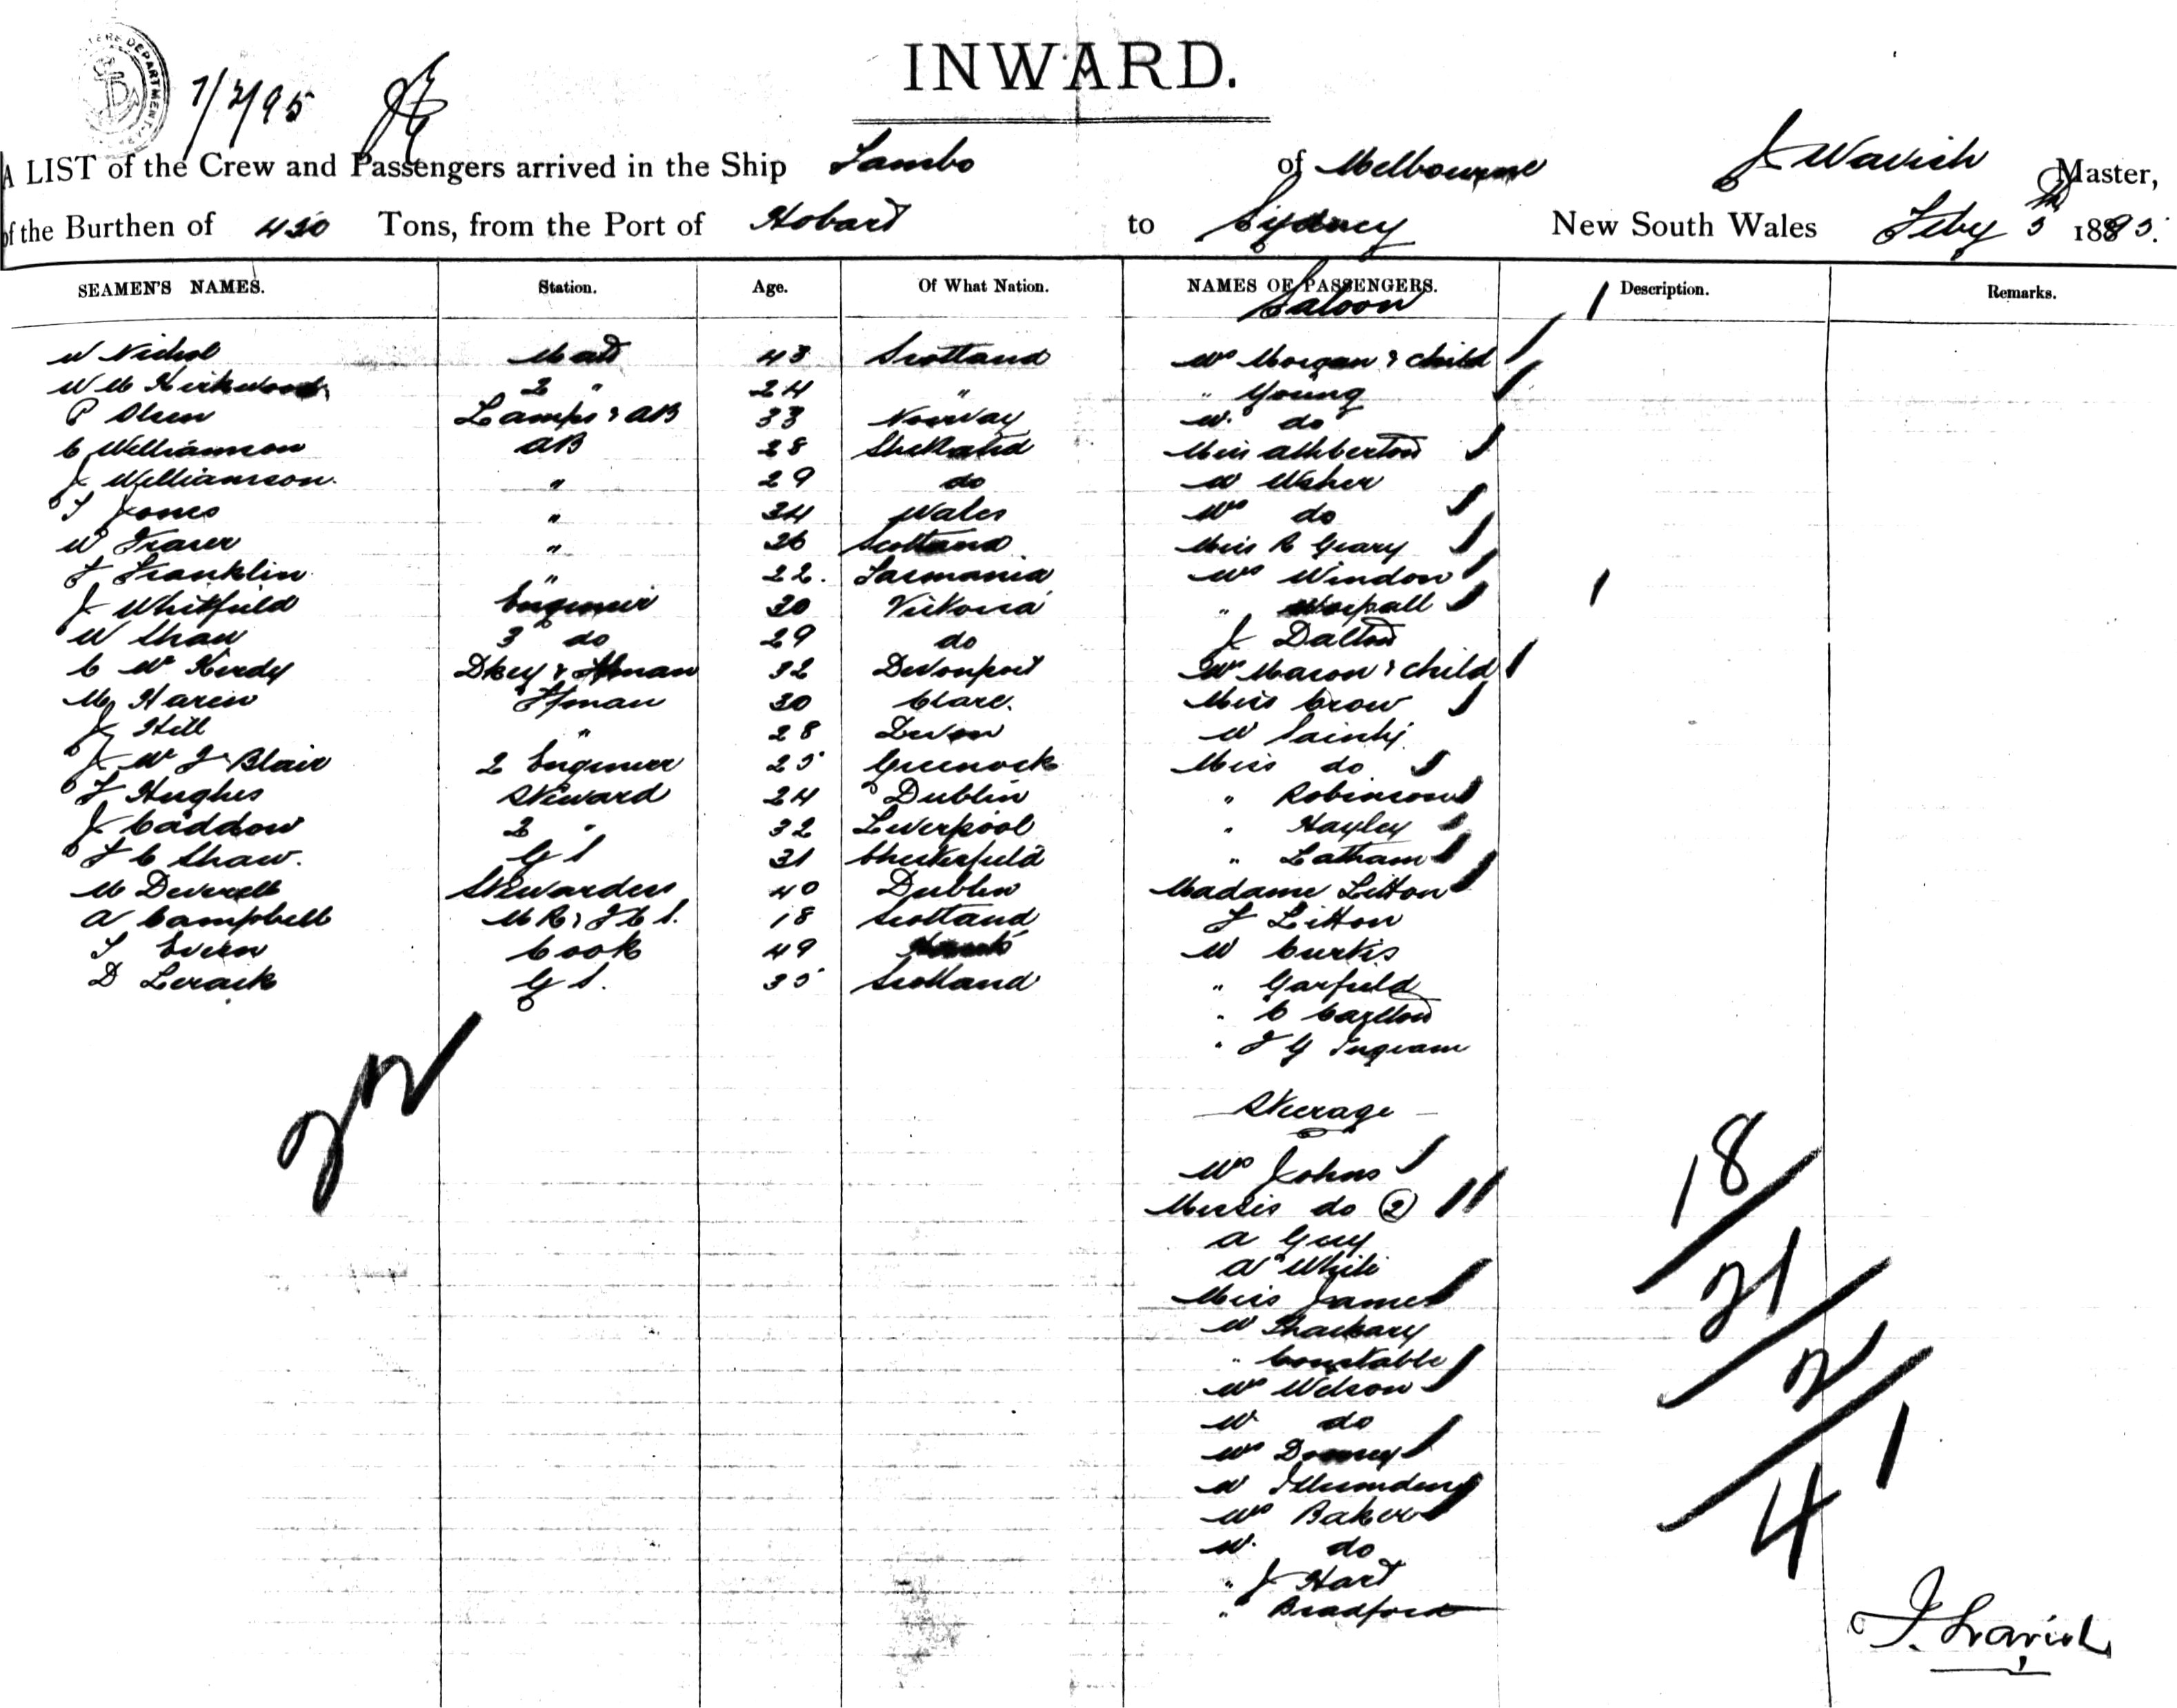 INWARD.
7/2/95
A LIST of the Crew and Passengers arrived in the Ship Tambo of Melbourne J Wavish Master,
of the Burthen of 430 Tons, from the Port of Hobart to Sydney New South Wales Feby 5th 1895.
SEAMEN'S NAMES. Station. Age. Of What Nation. NAMES OF PASSENGERS. Description. Remarks.
Saloon
W Nichol Mate 43 Scotland Mrs Morgan & child
W M Kirkwood 2 " 24 " " Young
P Olsen Lamps & AB 33 Norway Mr do
C Williamson AB 28 Shetland Miss Athberton
J Williamson. " 29 do Mr Usher
T Jones " 34 Wales Mrs do
W Fraser " 26 Scotland Miss R Geary
F Franklin " 22. Tasmania Mrs Windon
J Whitfield Engineer 30 Victoria "
W Shaw 3 do 29 do J Dalton
C Mc Kurdy Dkey & Fman 32 Devonport Mrs Mason & child
M Haren Fman 30 Clare. Miss Crow
J Hill " 28 Devon Mr
J Mc J Blair 2 Engineer 25 Greenock Miss do
T Hughes Steward 24 Dublin " Robinson
J Caddow 2 " 32 Liverpool " Hayley
F C Shaw. G S 31 Chesterfield " Latham
M Deverell Stewardess 40 Dublin Madame Litton
A Campbell M R & F C S. 18 Scotland F Litton
Cook 49 Mr Curtis
D Lerack G S. 35 Scotland " Garfield
" C Carlton
" F G Ingram
Steerage
22
Mrs Johns
do 2
A Guy
A White
Miss James
Mr Thackary
" Constable
Mrs Wilson
Mr do
Mrs
Mr
Mrs Baker
Mr do
" J Hart
" Bradford
18
21
2
1
4
J. Wavish